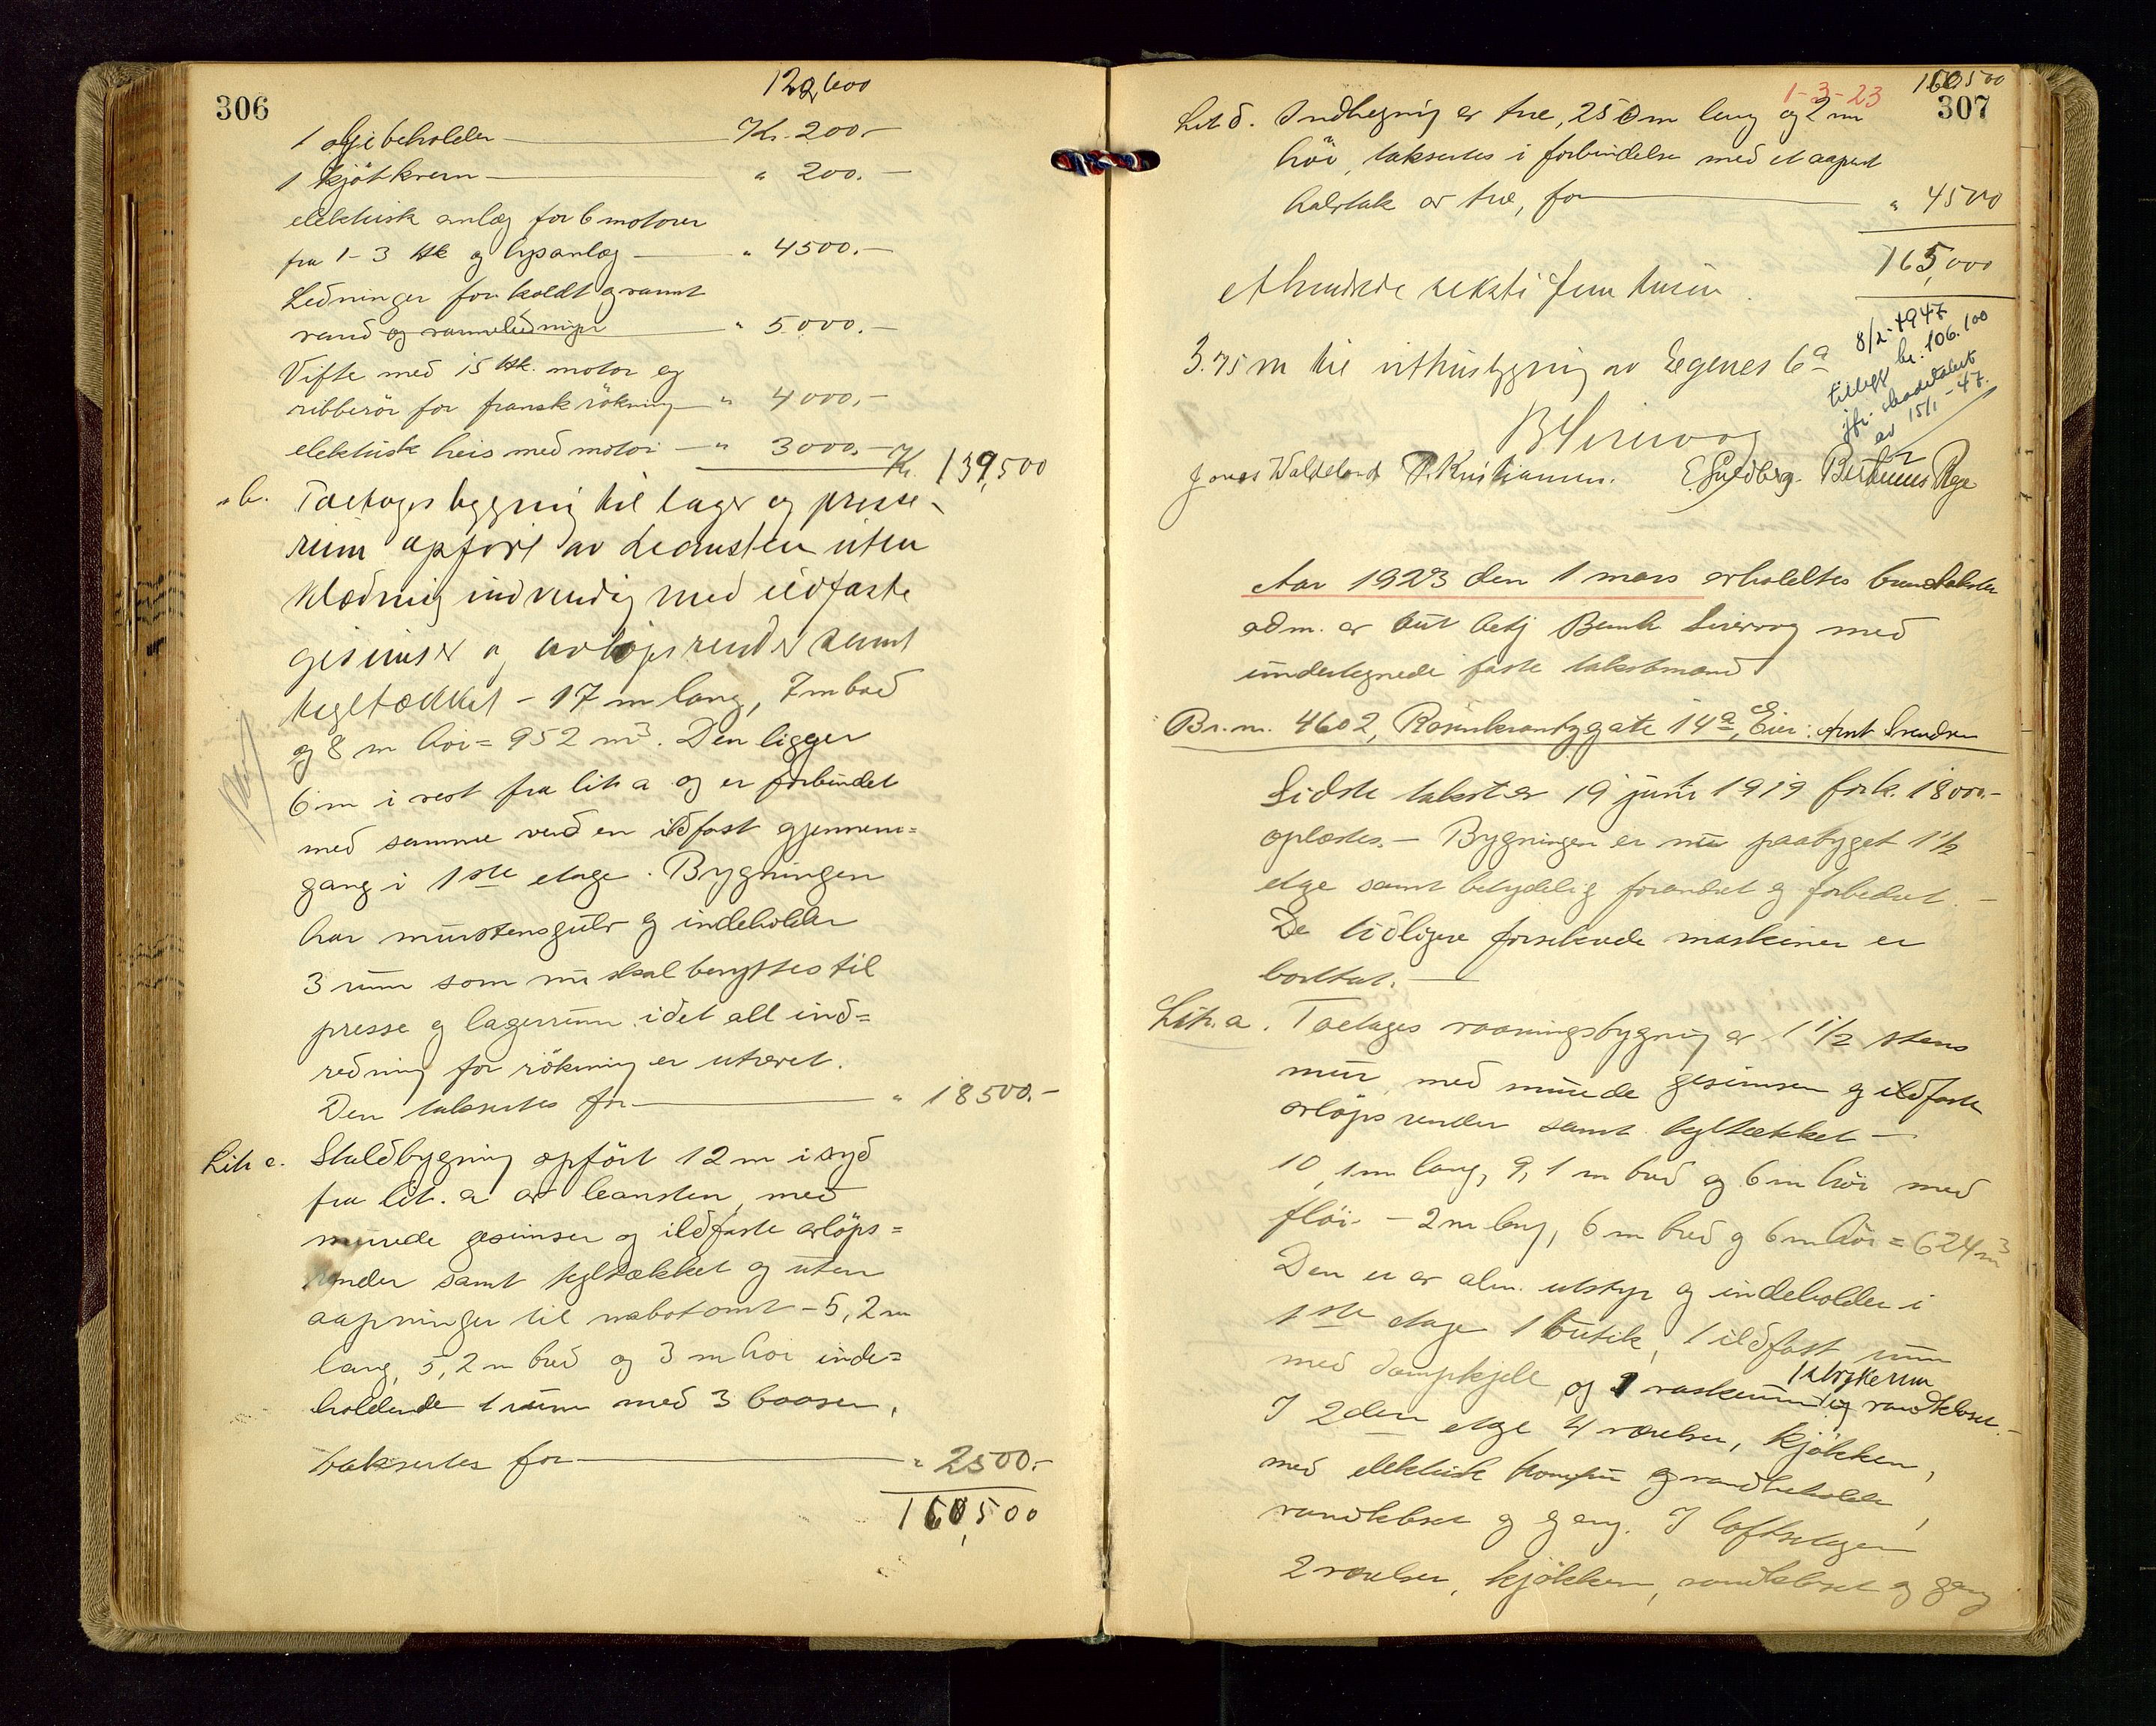 306
122,600
1 oljebeholder — Kr. 200.-
1 kjötkvern — " 200.-
elektrisk anlæg for 6 motorer
fra 1-3 Hk og lysanlæg — " 4500.-
Ledninger for koldt og varmt
vand og varmeledninger — " 5000.-
Vifte med 15 Hk. motor og
ribberör for fransk rökning — " 4000.-
elektrisk heis med motor — " 3000.- Kr. 139,500
" b. Toetages bygning til lager og presse-
rum opfört av leamsten uten
klædning indvendig med ildfaste
gesimser og avlöpsrender samt
tegltækket - 17 m lang, 7 m bred
og 8 m höi = 952 m³. Den ligger
6 m i vest fra lit a og er forbundet
med samme ved en ildfast gjennem=
gang i 1ste etage. Bygningen
har murstensgulv og indeholder
3 rum som nu skal benyttes til
presse og lagerrum idet all ind=
redning for rökning er utrevet.
Den takseres for — " 18500.-
Lit c. Staldbygning opfört 12 m i syd
fra lit. a av leamsten, med
murede gesimser og ildfaste avlöps=
render samt tegltækket og uten
aapninger til nabotomt - 5,2 m
lang, 5,2 m bred og 3 m höi inde=
holdende 1 rum med 3 baaser,
takseres for — " 2500.-
160,500
1-3-23
160,500
307
Lit d. Indhegning av træ, 250 m lang og 2 m
höi, takseres i forbindelse med et aapent
halvtak av træ, for — " 4500
165,000
Et hundrede seksti fem tusen.
8/2-1947
tillegg kr. 106.100
jfr. skadetakst
av 15/1-47.
3.75 m til uthusbygning av Egenes 6a
B Sirevog
Jonas Waldeland P. Kristiansen. E. Guldberg. Bertinius Rege
Aar 1923 den 1 mars avholdtes branntakster
adm. av aut betj Bernh. Sirevog med
undertegnede faste takstmænd
Br. nr. 4602, Rosenkrantzgate 14a, Eier: Arnt Svendsen
Sidste takst av 19 juni 1919 for k. 18000.-
oplæstes. - Bygningen er nu paabygget 1½
etage samt betydelig forandret og forbedret. -
De tidligere forsikrede maskiner er
borttat. —
Lit. a. Toetages vaaningsbygning av 1 1/2 stens
mur med murede gesimser og ildfaste
avlöpsrender samt tegltækket —
10,1 m lang, 9,1 m bred og 6 m höi med
flöi - 2 m lang, 6 m bred og 6 m höi = 624 m³
Den er av alm. utstyr og indeholder i
1ste etage 1 butik, 1 ildfast rum
med dampkjele og 1 vaskerum, 1 strykerum og vandkloset. -
I 2den etage 4 værelser, kjökken,
med elektrisk komfur og vandbeholder,
vandkloset og gang. I loftsetagen
2 værelser, kjökken, vandkloset og gang